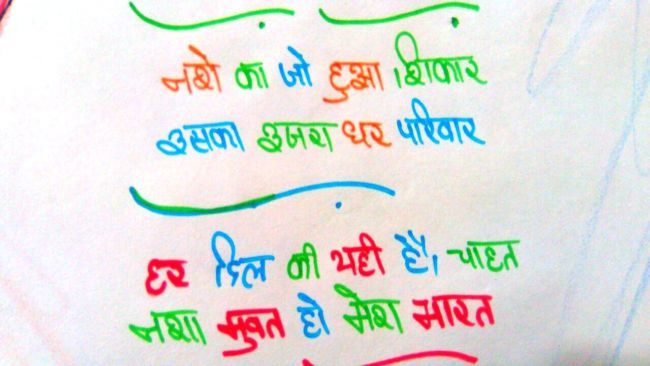 नशे का जो हुआ शिकार
उसका उजरा घर परिवार
हर दिल की यही है, चाहत
नशा मुक्त हो मेरा भारत